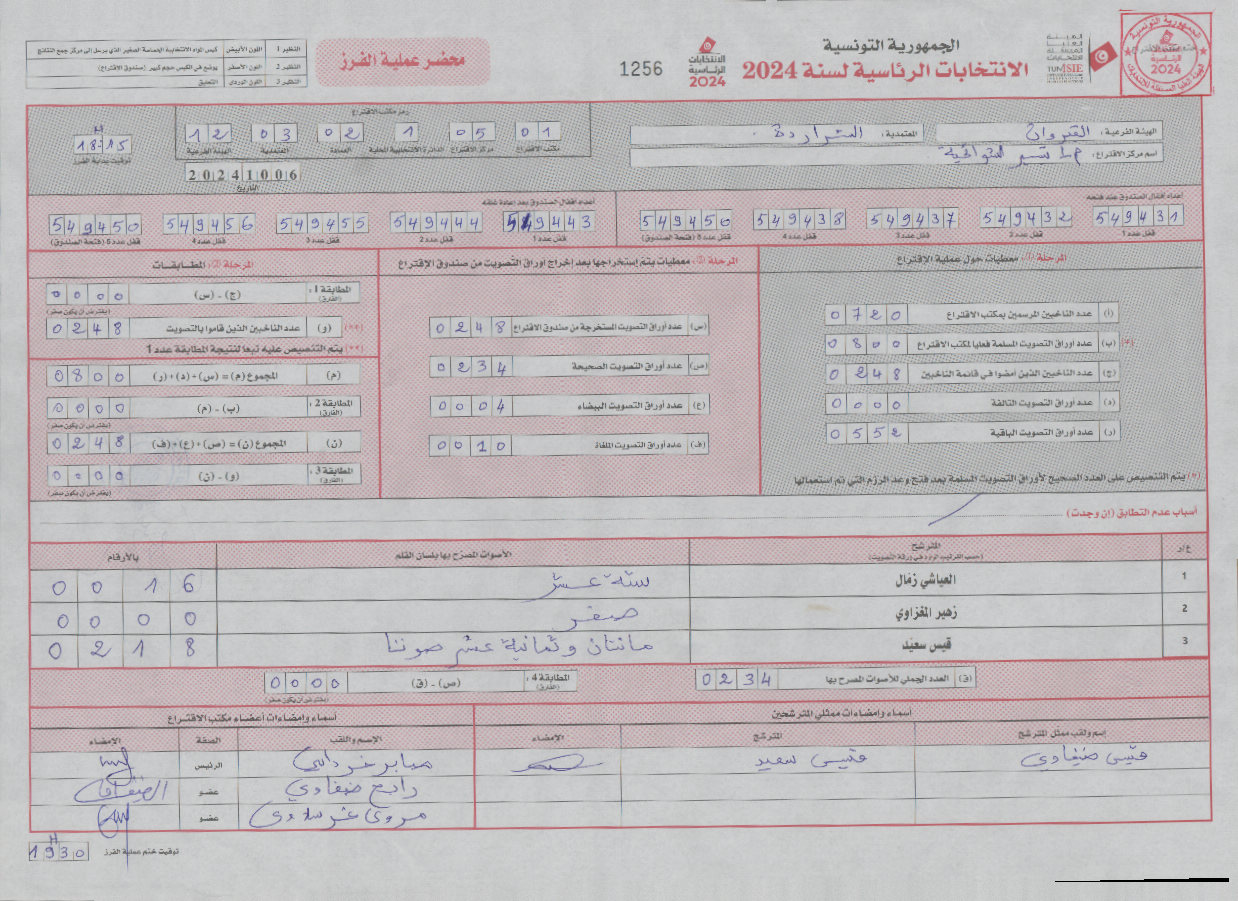 الجمهورية التونسية
الانتخابات الرئاسية لسنة 2024
1256
الانتخابات الرئاسية 2024
محضر عملية الفرز
النظير 1 اللون الأبيض كيس المواد الانتخابية الحساسة الصغير الذي يرحل إلى مركز جمع النتائج
النظير 2 اللون الأصفر يوضع في الكيس حجم كبير (صندوق الاقتراع)
النظير 3 اللون الوردي التعليق
الهيئة الفرعية : القيروان
المعتمدية : الشراردة
اسم مركز الاقتراع :
رمز مكتب الاقتراع
01 05 1 02 03 12
مكتب الاقتراع مركز الاقتراع الدائرة الانتخابية المحلية العمادة المعتمدية الهيئة الفرعية
20241006
التاريخ
18H15
توقيت بداية الفرز
أعداد أقفال الصندوق عند فتحه
549431 549432 549437 549438 549450
قفل عدد 1 قفل عدد 2 قفل عدد 3 قفل عدد 4 قفل عدد 5 (فتحة الصندوق)
أعداد أقفال الصندوق بعد إعادة غلقه
549443 549444 549455 549456 549450
قفل عدد 1 قفل عدد 2 قفل عدد 3 قفل عدد 4 قفل عدد 5 (فتحة الصندوق)
المرحلة ① : معطيات حول عملية الاقتراع
(أ) عدد الناخبين المرسمين بمكتب الاقتراع 0720
(*) (ب) عدد أوراق التصويت المسلمة فعليا لمكتب الاقتراع 0800
(ج) عدد الناخبين الذين أمضوا في قائمة الناخبين 0248
(د) عدد أوراق التصويت التالفة 0000
(ر) عدد أوراق التصويت الباقية 0552
(*) يتم التنصيص على العدد الصحيح لأوراق التصويت المسلمة بعد فتح وعد الرزم التي تم استعمالها
المرحلة ② : معطيات يتم إستخراجها بعد إخراج أوراق التصويت من صندوق الإقتراع
(س) عدد أوراق التصويت المستخرجة من صندوق الاقتراع 0248
(ص) عدد أوراق التصويت الصحيحة 0234
(ع) عدد أوراق التصويت البيضاء 0004
(ف) عدد أوراق التصويت الملغاة 0010
المرحلة ③ : المطابقات
المطابقة 1 : (الفارق) (ج) - (س) 0000
(يفترض أن يكون صفر)
(**) (و) عدد الناخبين الذين قاموا بالتصويت 0248
(**) يتم التنصيص عليه تبعا لنتيجة المطابقة عدد 1
(م) المجموع (م) = (س) + (د) + (ر) 0800
المطابقة 2 : (الفارق) (ب) - (م) 0000
(يفترض أن يكون صفر)
(ن) المجموع (ن) = (ص) + (ع) + (ف) 0248
المطابقة 3 : (الفارق) (و) - (ن) 0000
(يفترض أن يكون صفر)
أسباب عدم التطابق (إن وجدت)
ع/ر المترشح الأصوات المصرح بها بلسان القلم بالأرقام
(حسب الترتيب الوارد في ورقة التصويت)
1 العياشي زمال ستة عشر 0016
2 زهير المغزاوي صفر 0000
3 قيس سعيد مائتان وثمانية عشر صوتا 0218
(ق) العدد الجملي للأصوات المصرح بها 0234
المطابقة 4 : (الفارق) (ص) - (ق) 0000
(يفترض أن يكون صفر)
أسماء وإمضاءات ممثلي المترشحين
إسم ولقب ممثل المترشح المترشح الامضاء
قيس ضيفاوي قيس سعيد
أسماء وإمضاءات أعضاء مكتب الاقتراع
الإسم واللقب الصفة الامضاء
الرئيس
رابح ضيفاوي عضو
عضو
توقيت ختم عملية الفرز 19H30